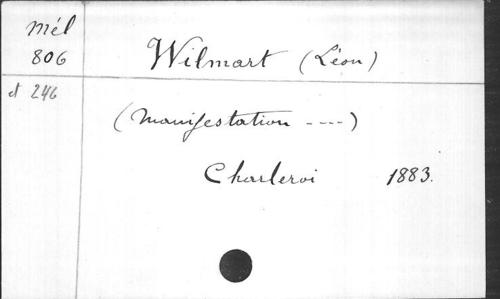 Mél
806
Wilmart (Léon)
et 246
(Manifestation ----)
Charleroi 1883.